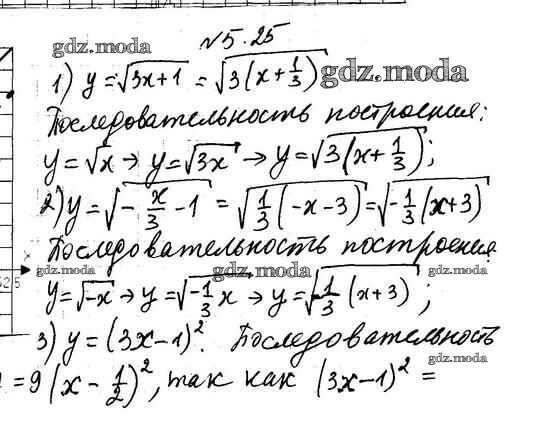 gdz.moda
№5.25
1) y = √(3x+1) = √(3(x+1/3)) gdz.moda
Последовательность построения:
y=√x → y=√(3x) → y=√(3(x+1/3));
2) y=√(-x/3-1) = √(1/3(-x-3)) = √(-1/3(x+3))
Последовательность построения
gdz.moda gdz.moda gdz.moda
y=√(-x) → y=√(-1/3x) → y=√(-1/3(x+3));
3) y=(3x-1)². Последовательность
gdz.moda
=9(x-1/2)², так как (3x-1)² =